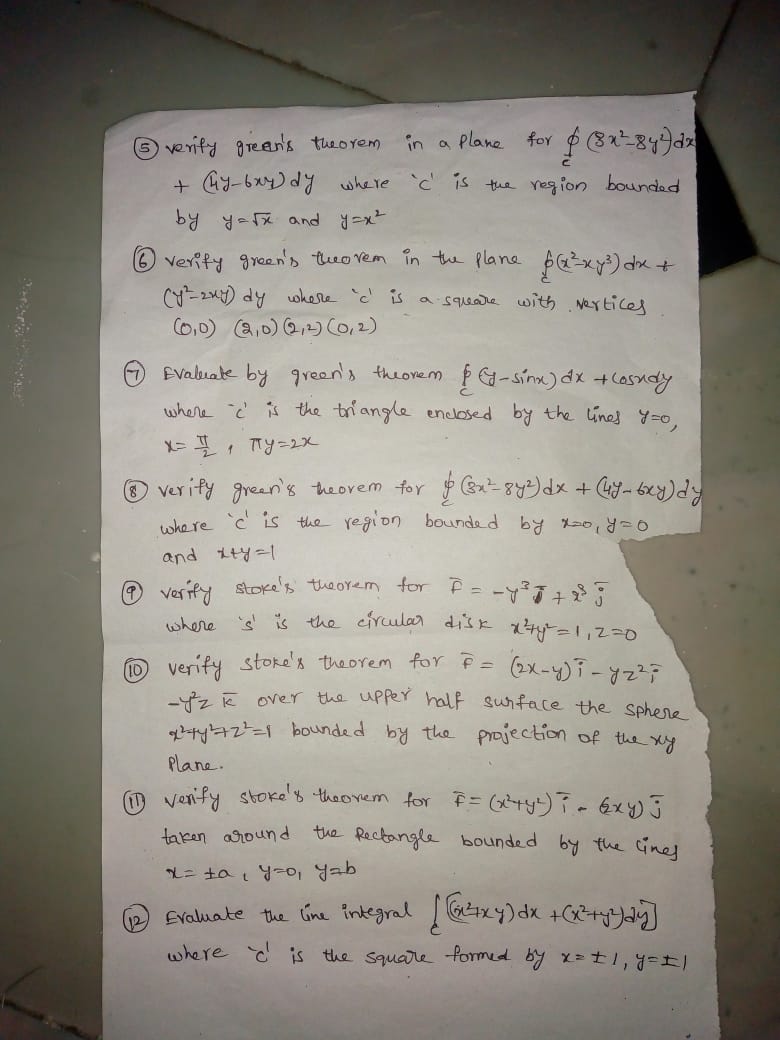 ⑤ verify green's theorem in a plane for ∮c (3x²-8y²)dx
+ (4y-6xy)dy where 'c' is the region bounded
by y=√x and y=x²
⑥ verify green's theorem in the plane ∮c(x²-xy³)dx +
(y²-2xy) dy where 'c' is a square with vertices
(0,0) (2,0) (2,2) (0,2)
⑦ Evaluate by green's theorem ∮c (y-sinx)dx + cosxdy
where 'c' is the triangle enclosed by the lines y=0,
x=π/2, πy=2x
⑧ verify green's theorem for ∮c (3x²-8y²)dx + (4y-6xy)dy
where 'c' is the region bounded by x=0, y=0
and x+y=1
⑨ verify stoke's theorem for F̄ = -y³ī + x³j̄
where 's' is the circular disk x²+y²=1, z=0
⑩ verify stoke's theorem for F̄ = (2x-y)ī - yz²j̄
-y²z k̄ over the upper half surface the sphere
x²+y²+z²=1 bounded by the projection of the xy
plane.
⑪ verify stoke's theorem for F̄ = (x²+y²)ī - (2xy)j̄
taken around the Rectangle bounded by the lines
x=±a, y=0, y=b
⑫ Evaluate the line integral ∫c[(x²+xy)dx + (x²+y²)dy]
where 'c' is the square formed by x=±1, y=±1